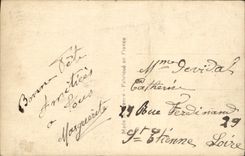 Bonne Fête
Amitiés
à tous
Marguerite
Fabriqué en France
Mme Devidal
Catherine
29 Rue Ferdinand 29
St Etienne
Loire